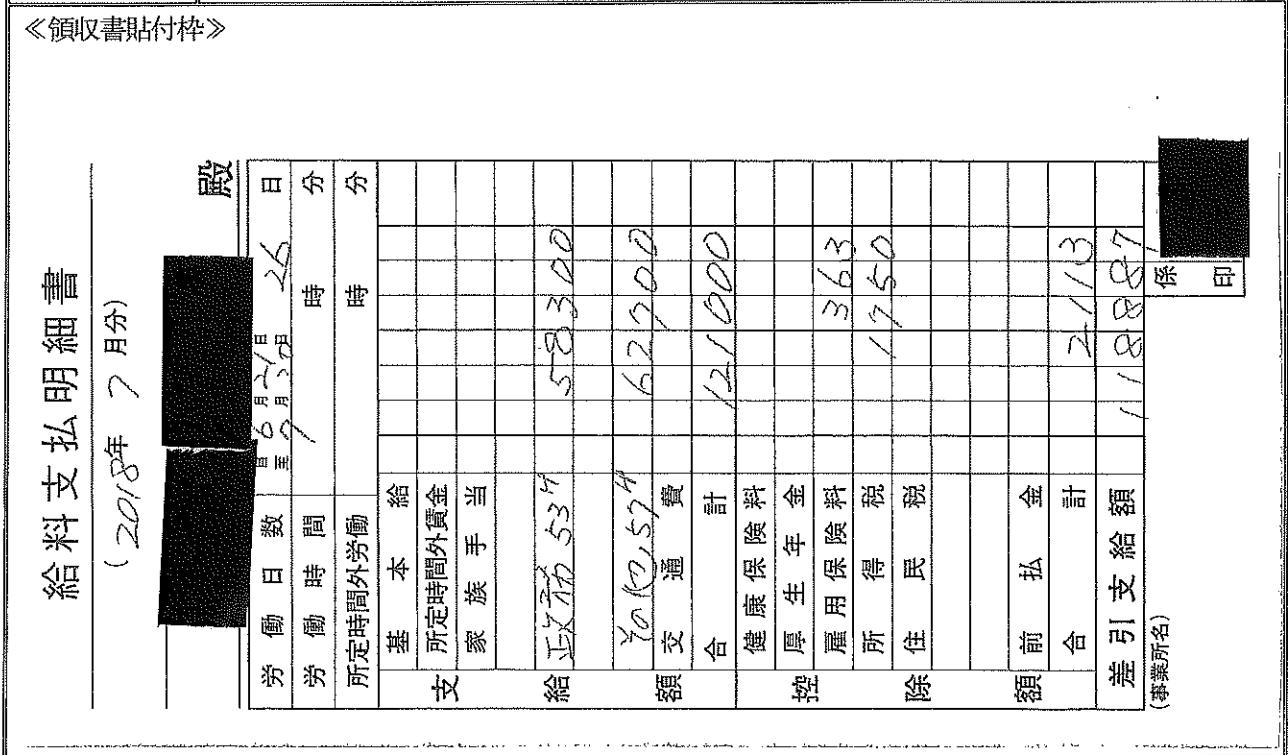 ≪領収書貼付枠≫
給料支払明細書
(2018年 7月分)
殿
労働日数 自 6月21日 至 7月20日 26日
労働時間 時 分
所定時間外労働 時 分
支給額
基本給
所定時間外賃金
家族手当
政務 53H 58300
その他 57H 62700
交通費
合計 121000
控除額
健康保険料
厚生年金
雇用保険料 363
所得税 1750
住民税
前払金
合計 2113
差引支給額 118887
(事業所名)
係印